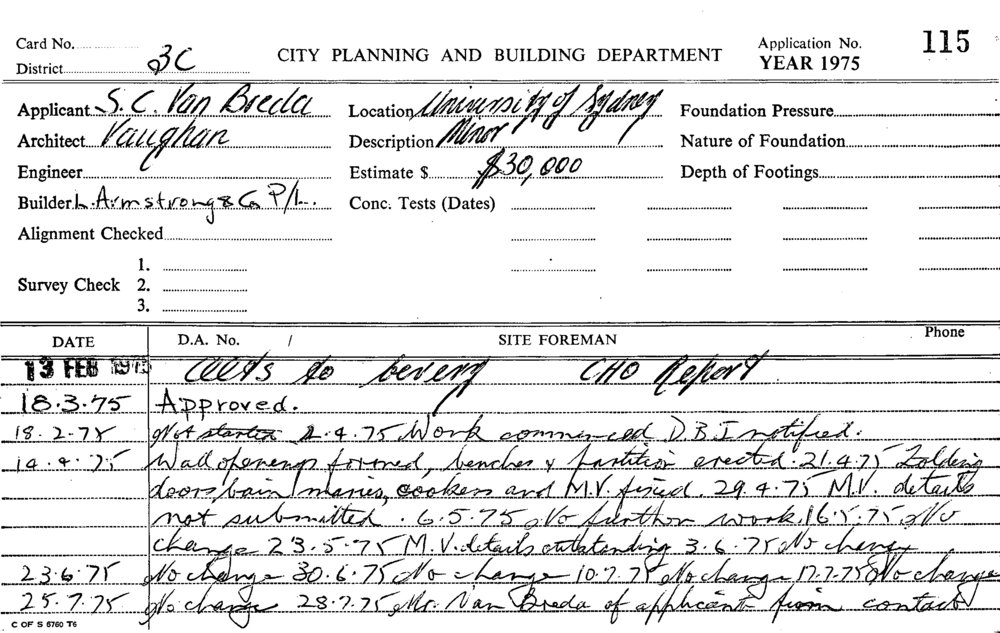 Card No.
District 3C
CITY PLANNING AND BUILDING DEPARTMENT
Application No. 115
YEAR 1975
Applicant S. C. Van Breda
Location University of Sydney
Foundation Pressure
Architect Vaughan
Description Minor
Nature of Foundation
Engineer
Estimate $ $30,000
Depth of Footings
Builder L. Armstrong & Co P/L.
Conc. Tests (Dates)
Alignment Checked
Survey Check
1.
2.
3.
DATE
D.A. No. /
SITE FOREMAN
Phone
13 FEB 1975 to CHO Report
18.3.75 Approved.
18.2.75 Not started 2.4.75 Work commenced D.B.I notified.
14.4.75 Wall openings formed, benches & partition erected. 21.4.75 Folding
doors, bain maries, cookers and M.V. fixed. 29.4.75 M.V. details
not submitted. 6.5.75 No further work. 16.5.75 No
change 23.5.75 M.V. details outstanding 3.6.75 No change
23.6.75 No change 30.6.75 No change 10.7.75 No change 17.7.75 No change
25.7.75 No change 28.7.75 Mr. Van Breda of applicant firm contact
C OF S 6760 T6